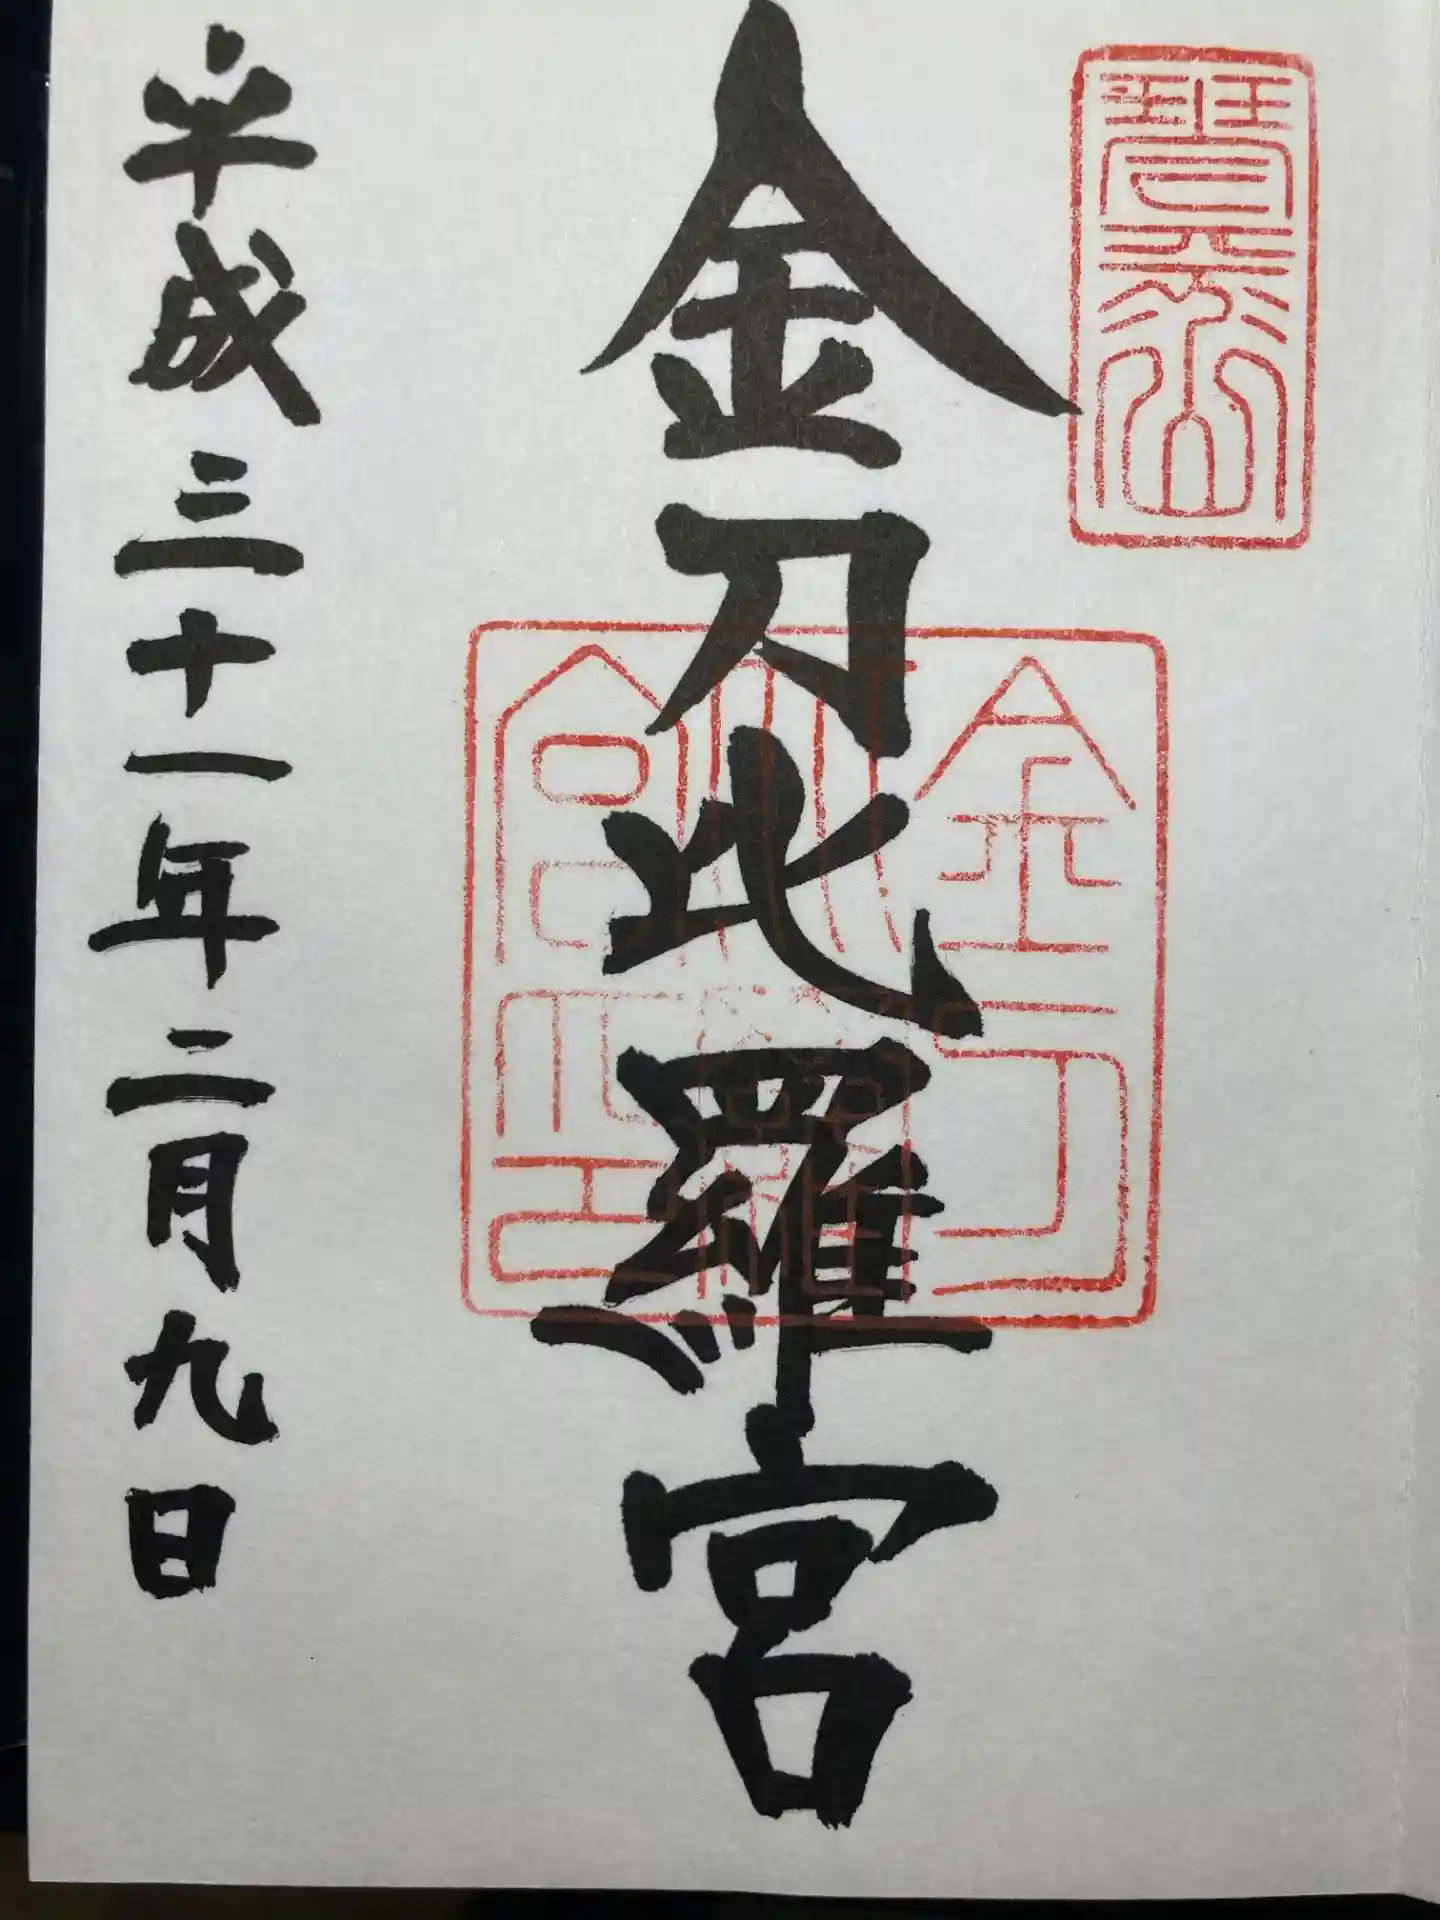 琴平山
金刀比羅宮
金刀比羅宮印
平成三十一年二月九日